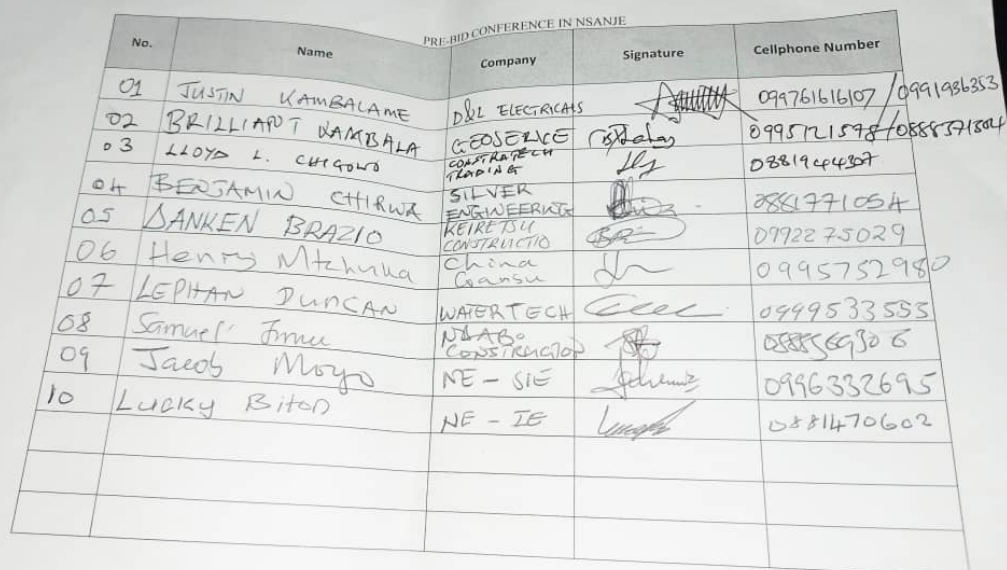 PRE-BID CONFERENCE IN NSANJE
No. Name Company Signature Cellphone Number
01 JUSTIN KAMBALAME D&L ELECTRICALS 099761616107 / 0991936353
02 BRILLIANT KAMBALA GEOSERVE 0995121578 / 0888371804
03 LLOYD L. CHIGOWO CONSTRATECH TRADING 0881944307
04 BENJAMIN CHIRWA SILVER ENGINEERING 0881771054
05 DANKEN BRAZIO KEIRETSU CONSTRUCTIO 0992275029
06 Henry Mtchuka China Gansu 0995752980
07 LEPHAN DUNCAN WATERTECH 0999533553
08 Samuel CONSTRUCTION
09 Jacob Moyo NE - SIE 0996332695
10 Lucky Biton NE - IE 0881470602